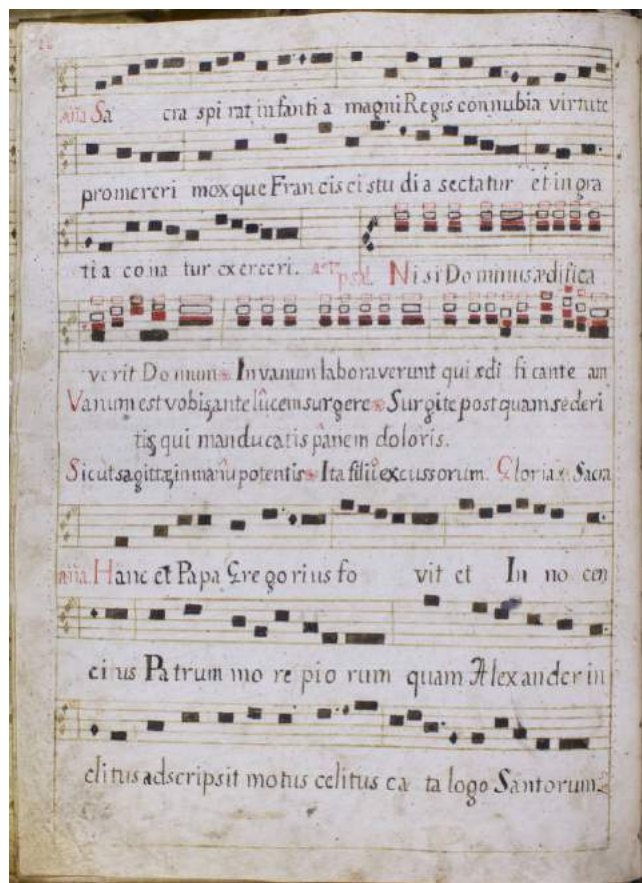 Aña Sa cra spi rat infanti a magni Regis connubia virtute
promereri mox que Francis ci stu di a sectatur et in gra
ti a cona tur exerceri. ps. Nisi Dominus ædifica
verit Domum In vanum laboraverunt qui ædi fi cante am
Vanum est vobis ante lucem surgere Surgite postquam sederi
tis qui manducatis panem doloris.
Sicut sagittæ in manu potentis Ita filii excussorum. Gloria. Sacra
aña. Hanc et Papa Gregorius fo vit et In no cen
ci us Patrum mo re pio rum quam Alexander in
clitus adscripsit motus celitus ca ta logo Santorum.